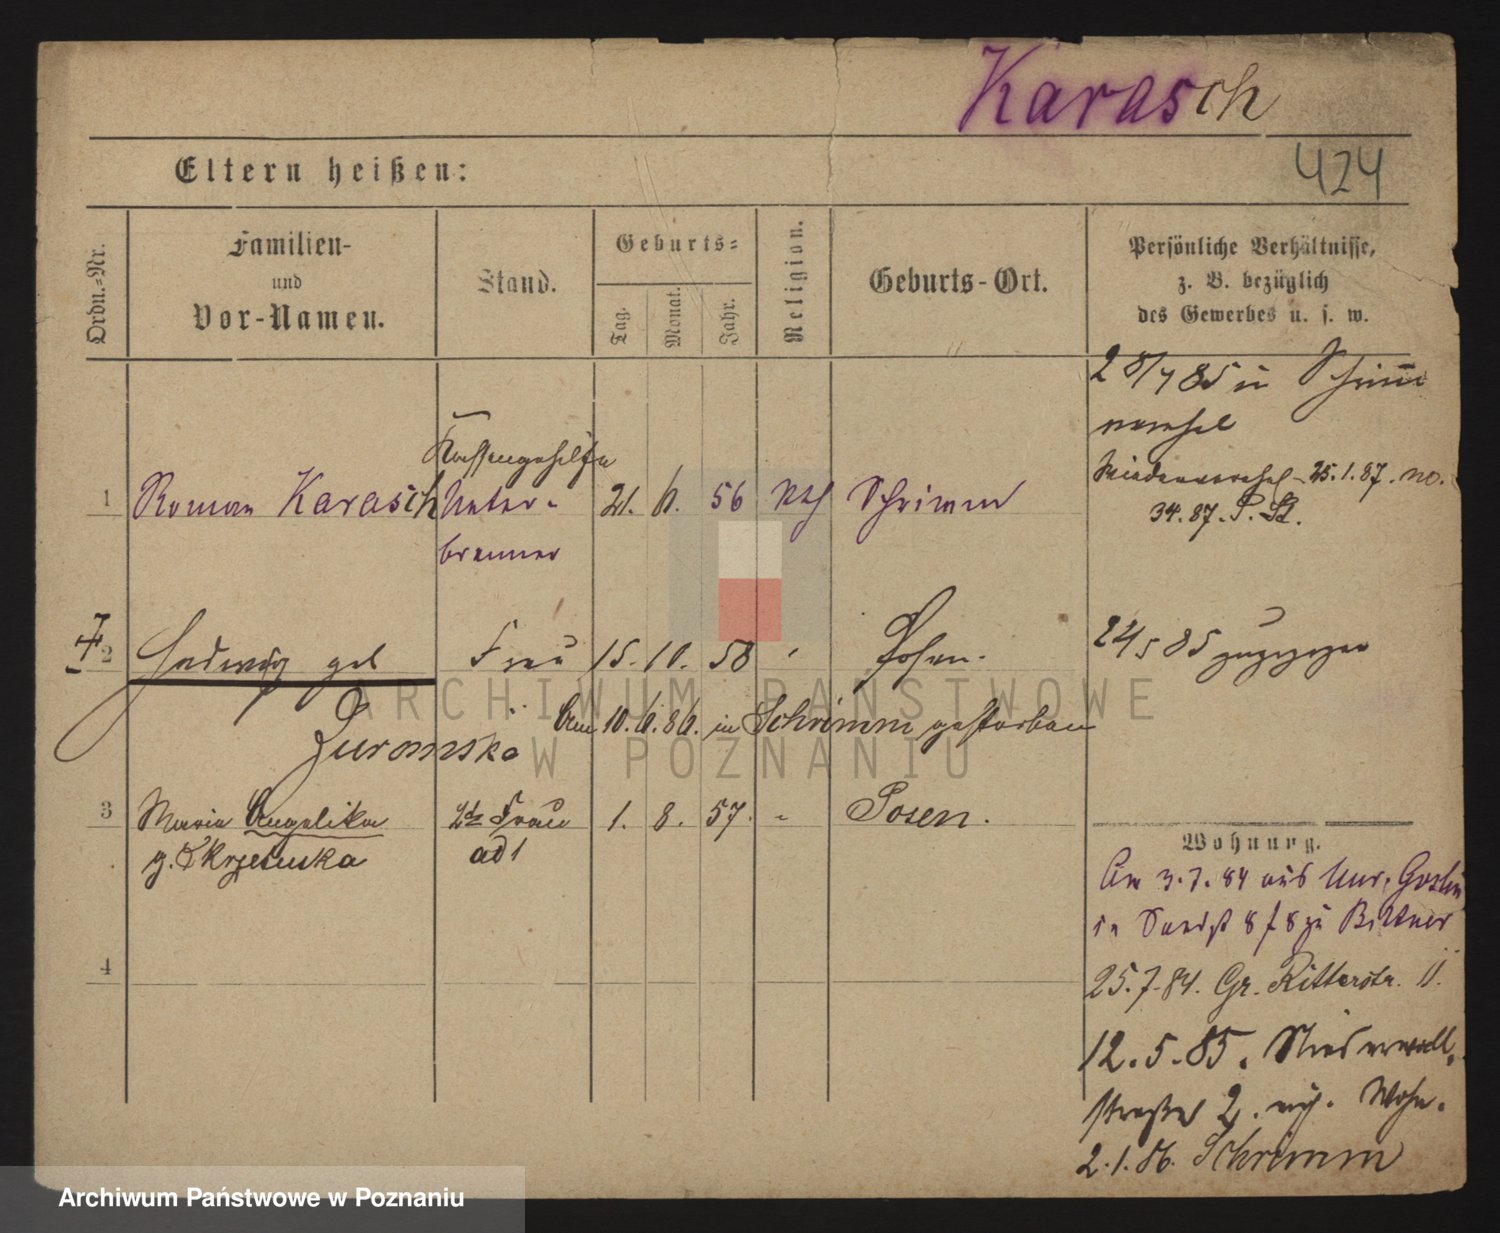 Karasch
Eltern heißen:
424
Ordn.-Nr.
Familien-
und
Vor-Namen.
Stand.
Geburts-
Tag.
Monat.
Jahr.
Religion.
Geburts-Ort.
Persönliche Verhältnisse,
z. B. bezüglich
des Gewerbes u. s. w.
28/7 85 in Schrimm
verehel
Wiederverehel. 25.1.87. no.
34.87. P. St.
Kassengehilfe
1 Roman Karasch Unter- 21. 6. 56 kth Schrimm
brenner
2 Hedwig geb Frau 15. 10. 58 Posen.
24/5 85 zugezogen
Zuromska Am 10.6.86. in Schrimm gestorben
3 Maria Angelika 2te Frau 1. 8. 57. Posen.
g. Skrzetuska ad 1
4
Wohnung.
Am 3.7.84 aus Mur. Goslin
in 8 zu Bittner
25.7.84. Gr. Ritterstr. 11.
12.5.85. Niederwall
straße 2. Wohn.
2.1.86. Schrimm
ARCHIWUM PAŃSTWOWE
W POZNANIU
Archiwum Państwowe w Poznaniu